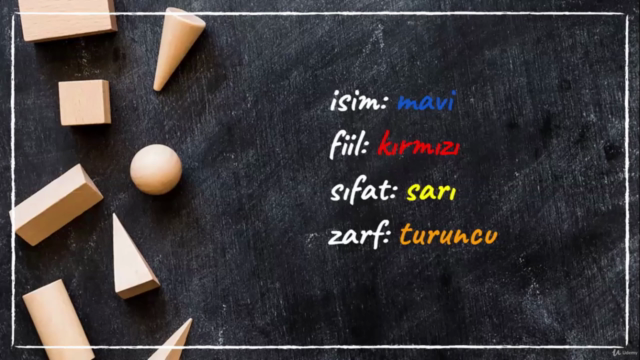 isim: mavi
fiil: kırmızı
sıfat: sarı
zarf: turuncu